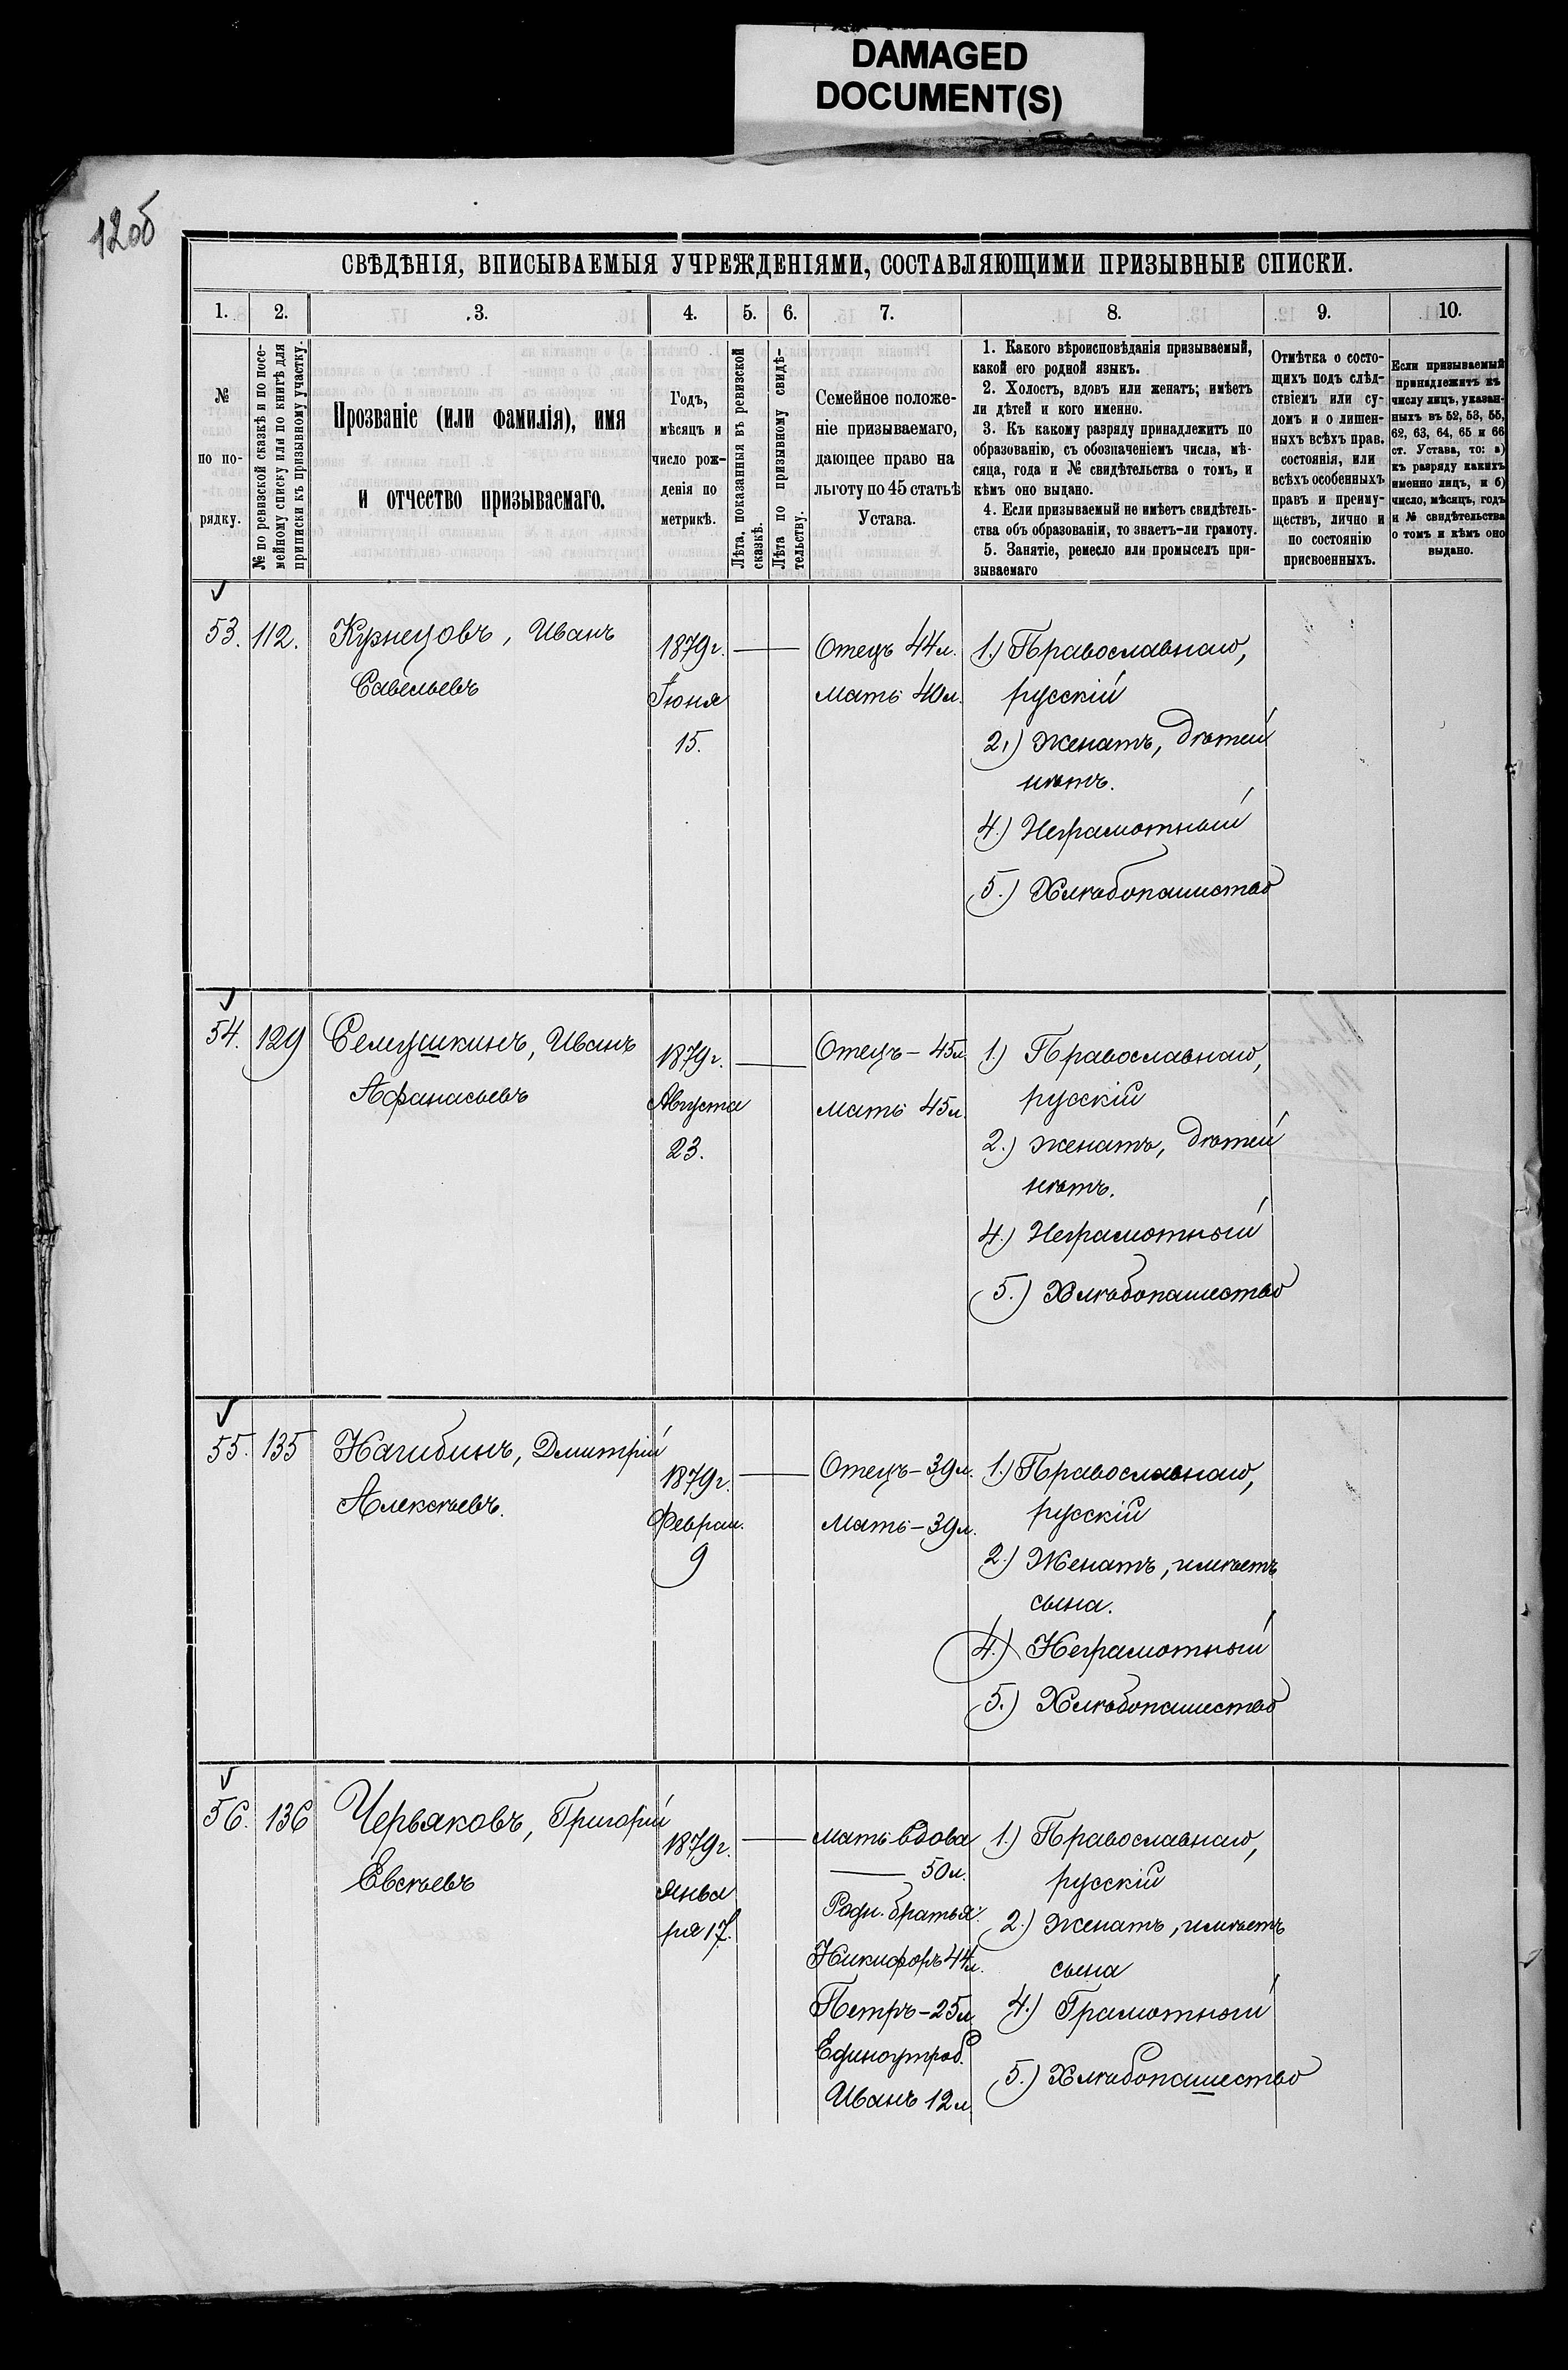 DAMAGED
DOCUMENT(S)
12об
СВѢДѢНІЯ, ВПИСЫВАЕМЫЯ УЧРЕЖДЕНІЯМИ, СОСТАВЛЯЮЩИМИ ПРИЗЫВНЫЕ СПИСКИ.
1. 2. 3. 4. 5. 6. 7. 8. 9. 10.
№
по по-
рядку.
№ по ревизской сказкѣ и по посе-
мейному списку или по книгѣ для
приписки къ призывному участку.
Прозваніе (или фамилія), имя
и отчество призываемаго.
Годъ,
мѣсяцъ и
число рож-
денія по
метрикѣ.
Лѣта, показанныя въ ревизской
сказкѣ.
Лѣта по призывному свидѣ-
тельству.
Семейное положе-
ніе призываемаго,
дающее право на
льготу по 45 статьѣ
Устава.
1. Какого вѣроисповѣданія призываемый,
какой его родной языкъ.
2. Холостъ, вдовъ или женатъ; имѣетъ
ли дѣтей и кого именно.
3. Къ какому разряду принадлежитъ по
образованію, съ обозначеніемъ числа, мѣ-
сяца, года и № свидѣтельства о томъ, и
кѣмъ оно выдано.
4. Если призываемый не имѣетъ свидѣтель-
ства объ образованіи, то знаетъ-ли грамоту.
5. Занятіе, ремесло или промыселъ при-
зываемаго
Отмѣтка о состо-
щихъ подъ слѣд-
ствіемъ или су-
домъ и о лишен-
ныхъ всѣхъ прав.
состоянія, или
всѣхъ особенныхъ
правъ и преиму-
ществъ, лично и
по состоянію
присвоенныхъ.
Если призываемый
принадлежитъ къ
числу лицъ, указан-
ныхъ въ 52, 53, 55,
62, 63, 64, 65 и 66
ст. Устава, то: а)
къ разряду какихъ
именно лицъ, и б)
число, мѣсяцъ, годъ
и № свидѣтельства
о томъ и кѣмъ оно
выдано.
53. 112. Кузнецовъ, Иванъ
Савельевъ
1879 г.
Іюня
15.
Отецъ 44 л.
Мать 40 л.
1.) Православнаго,
русскій
2.) Женатъ, дѣтей
нѣтъ.
4.) Неграмотный
5.) Хлѣбопашество
54. 129 Селеушкинъ, Иванъ
Афанасьевъ
1879 г.
Августа
23.
Отецъ - 45 л
Мать 45 л.
1.) Православнаго,
русскій
2.) женатъ, дѣтей
нѣтъ.
4.) Неграмотный
5.) Хлѣбопашество
55. 135 Нагибинъ, Дмитрій
Алексѣевъ.
1879 г.
Феврал.
9
Отецъ - 39 л.
Мать - 39 л.
1.) Православнаго,
русскій
2.) Женатъ, имѣетъ
сына.
4.) Неграмотный
5.) Хлѣбопашество
56. 136 Червяковъ, Григорій
Евсѣевъ
1879 г.
Янва
ря 17.
Мать вдова
50 л.
Родн. братья:
Никифоръ 44 л.
Петръ - 25 л
Единоутроб.
Иванъ 12 л.
1.) Православнаго,
русскій
2.) Женатъ, имѣетъ
сына
4.) Грамотный
5.) Хлѣбопашество